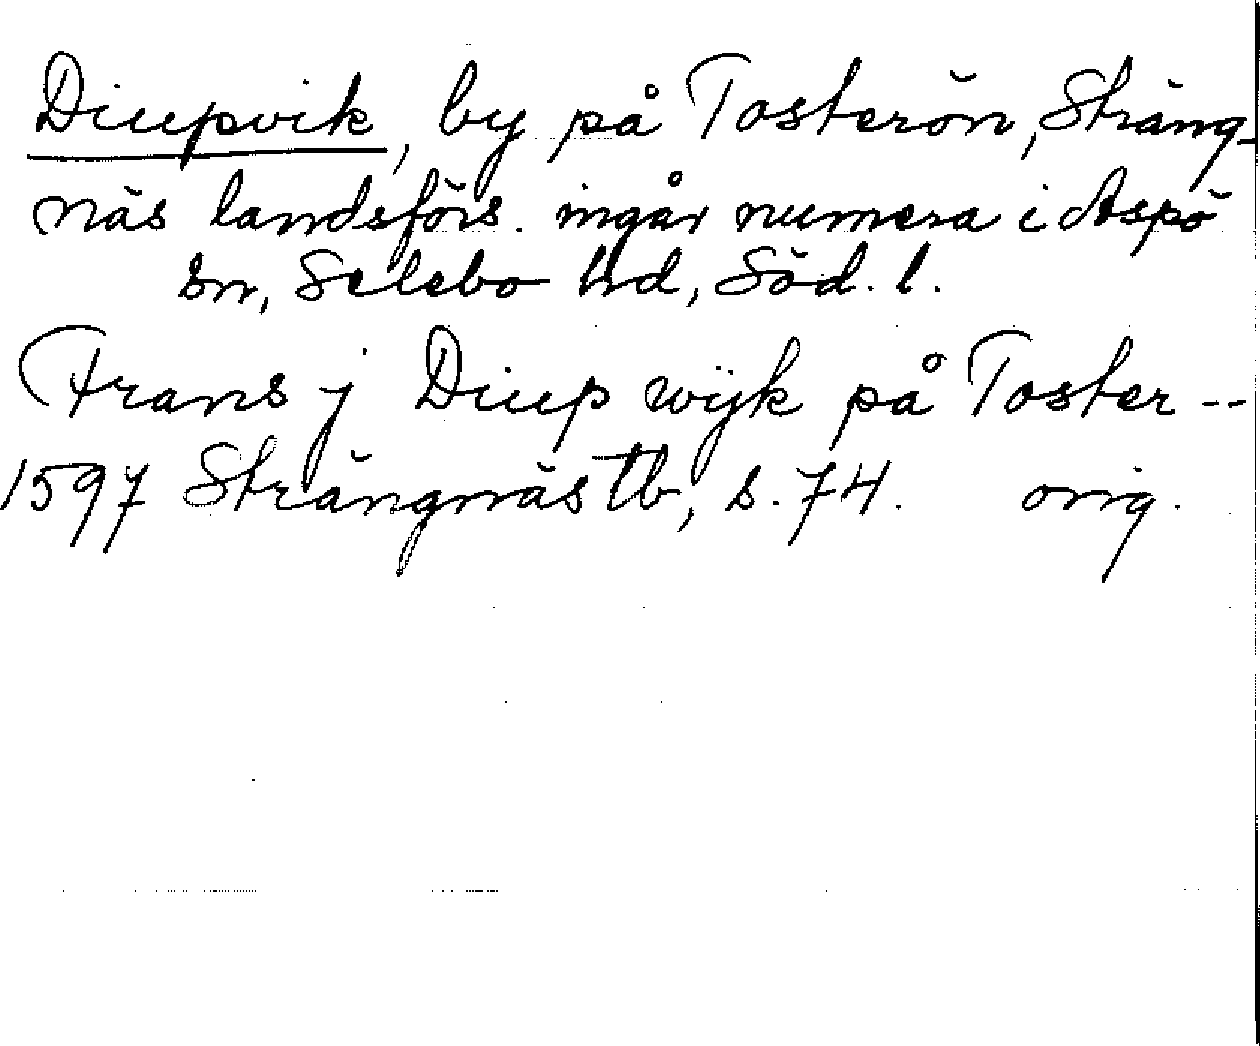 Diupvik, by på Tosterön, Sträng-
näs landsförs. ingår numera i Aspö
sn, Selebo hd, Söd. l.
Frans j Diup wijk på Toster --
1597 Strängnäs tb, s. 74. orig.